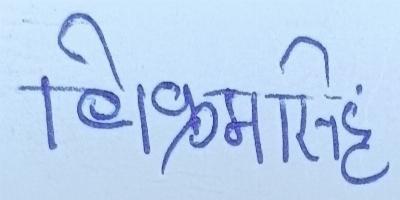 विक्रमसिंह